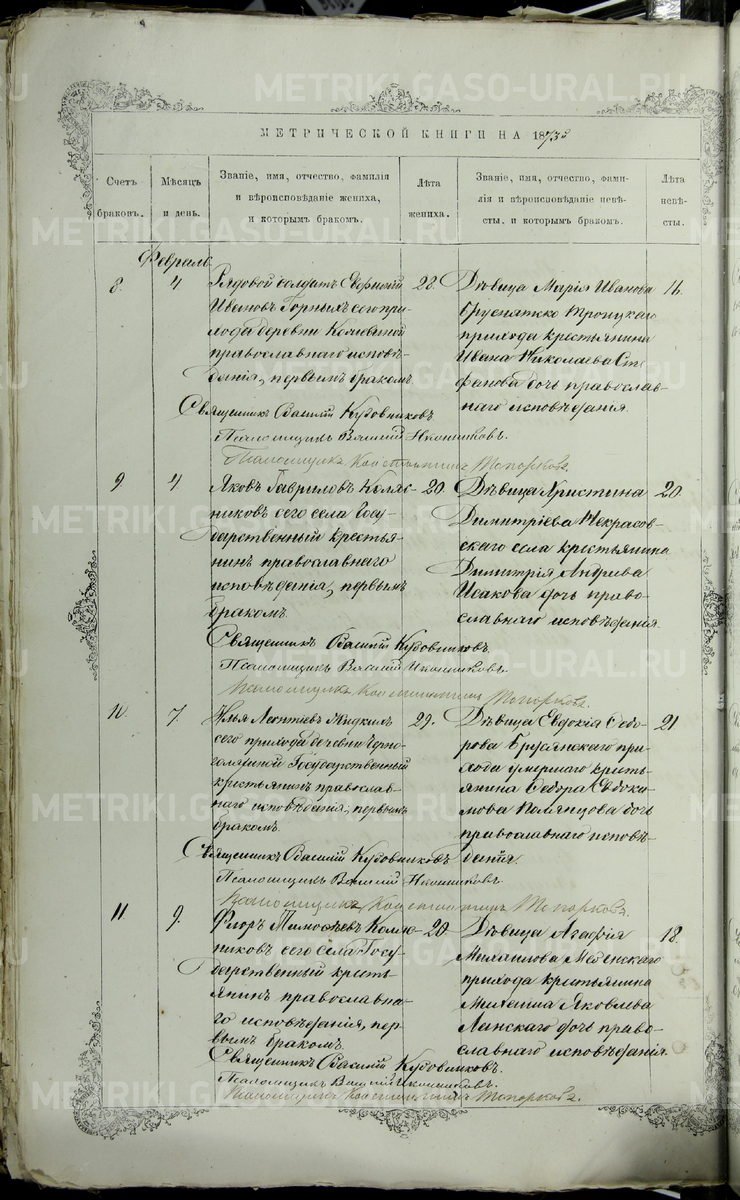 METRIKI.GASO-URAL.RU
МЕТРИЧЕСКОЙ КНИГИ НА 1873й
Счетъ браковъ.
Мѣсяцъ и день.
Званіе, имя, отчество, фамилія
и вѣроисповѣданіе жениха,
и которымъ бракомъ.
Лѣта жениха.
Званіе, имя, отчество, фами-
лія и вѣроисповѣданіе невѣ-
сты, и которымъ бракомъ.
Лѣта невѣ-
сты.
Февраль
8. 4
Рядовой солдатъ
Ивановъ Горныхъ сего при-
хода деревни
православнаго исповѣ-
данія, первымъ бракомъ
22.
Дѣвица Марія Иванова
Бруснятско Троицкаго
прихода крестьянина
Ивана Николаева Сте
фанова дочь православ-
наго исповѣданія.
16.
Священникъ Василій Кудовниковъ
Псаломщикъ Василій Иконниковъ.
Псаломщикъ Константинъ Топорковъ.
9 4.
Яковъ Гавриловъ Коляс-
никовъ сего села Госу-
дарственный крестья-
нинъ православнаго
исповѣданія, первымъ
бракомъ.
20.
Дѣвица Христина
Димитріева Некрасов-
скаго села крестьянина
Димитрія Андреева
Исакова дочь право-
славнаго исповѣданія.
20
Священникъ Василій Кудовниковъ.
Псаломщикъ Василій Иконниковъ.
Псаломщикъ Константинъ Топорковъ.
10. 7.
Илья Леонтіевъ Жидкихъ
сего прихода деревни
Государственный
крестьянинъ православ-
наго исповѣданія, первымъ
бракомъ.
29.
Дѣвица Евдокія Ѳедо-
рова Брусянскаго при-
хода умершаго кресть-
янина Ѳедора Евдоки-
мова дочь
православнаго исповѣ-
данія.
21
Священникъ Василій Кудовниковъ
Псаломщикъ Василій Иконниковъ
Псаломщикъ Константинъ Топорковъ.
11 9.
Флоръ Тимоѳеевъ Коляс-
никовъ сего села Госу-
дарственный кресть-
янинъ православна-
го исповѣданія, пер-
вымъ бракомъ.
20.
Дѣвица Агафія
Михаилова Меденскаго
прихода крестьянина
Михаила Яковлева
Ланскаго дочь право-
славнаго исповѣданія.
18.
Священникъ Василій Кудовниковъ.
Псаломщикъ Василій Иконниковъ.
Псаломщикъ Константинъ Топорковъ.